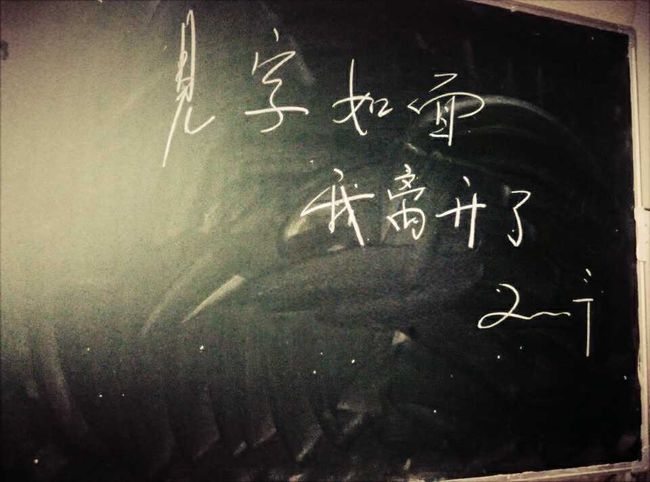 見字如面
我离开了